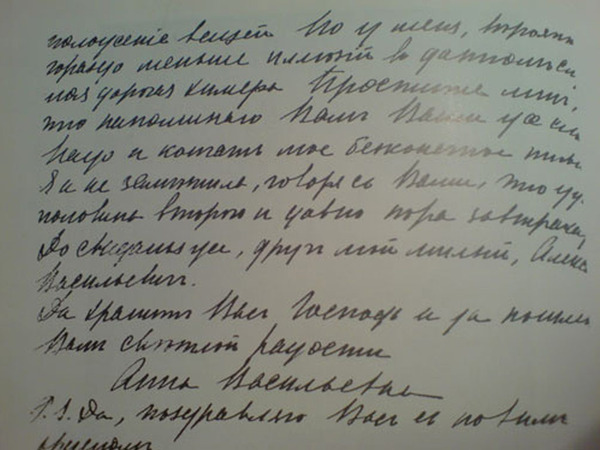 положенiе вещей Но у меня, вероятн
гораздо меньше
дорогая химера Простите мнѣ,
что напоминаю Вамъ Ваши уже
Надо и кончать мое безконечное пись
Я и не замѣтила, говоря съ Вами, что уж
половина второго и давно пора завтракат
До свиданья же, другъ мой милый, Алекс
Васильевичъ.
Да хранитъ Васъ Господь и да пошлет
Вамъ свѣтлой радости
Анна Васильевна
P.S. Да, поздравляю Васъ съ новымъ
орденомъ